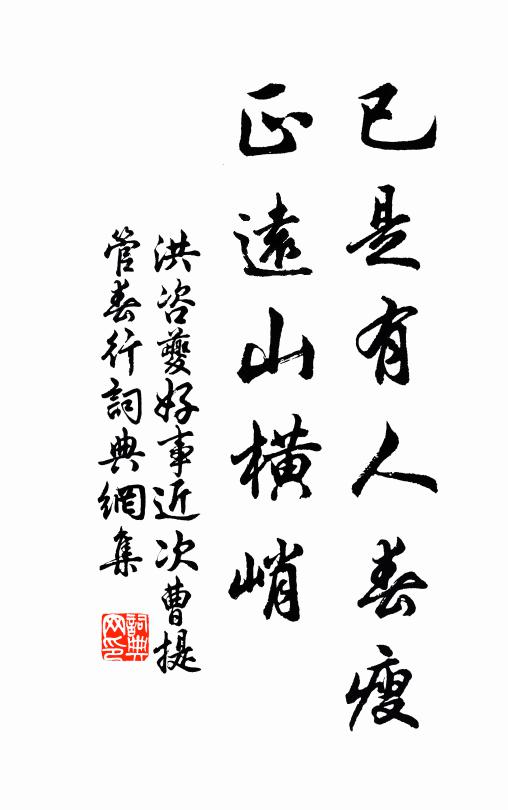 已是有人春瘦
正遠山橫峭
洪咨夔好事近次曹提
管春行詞典網集
詞典网印